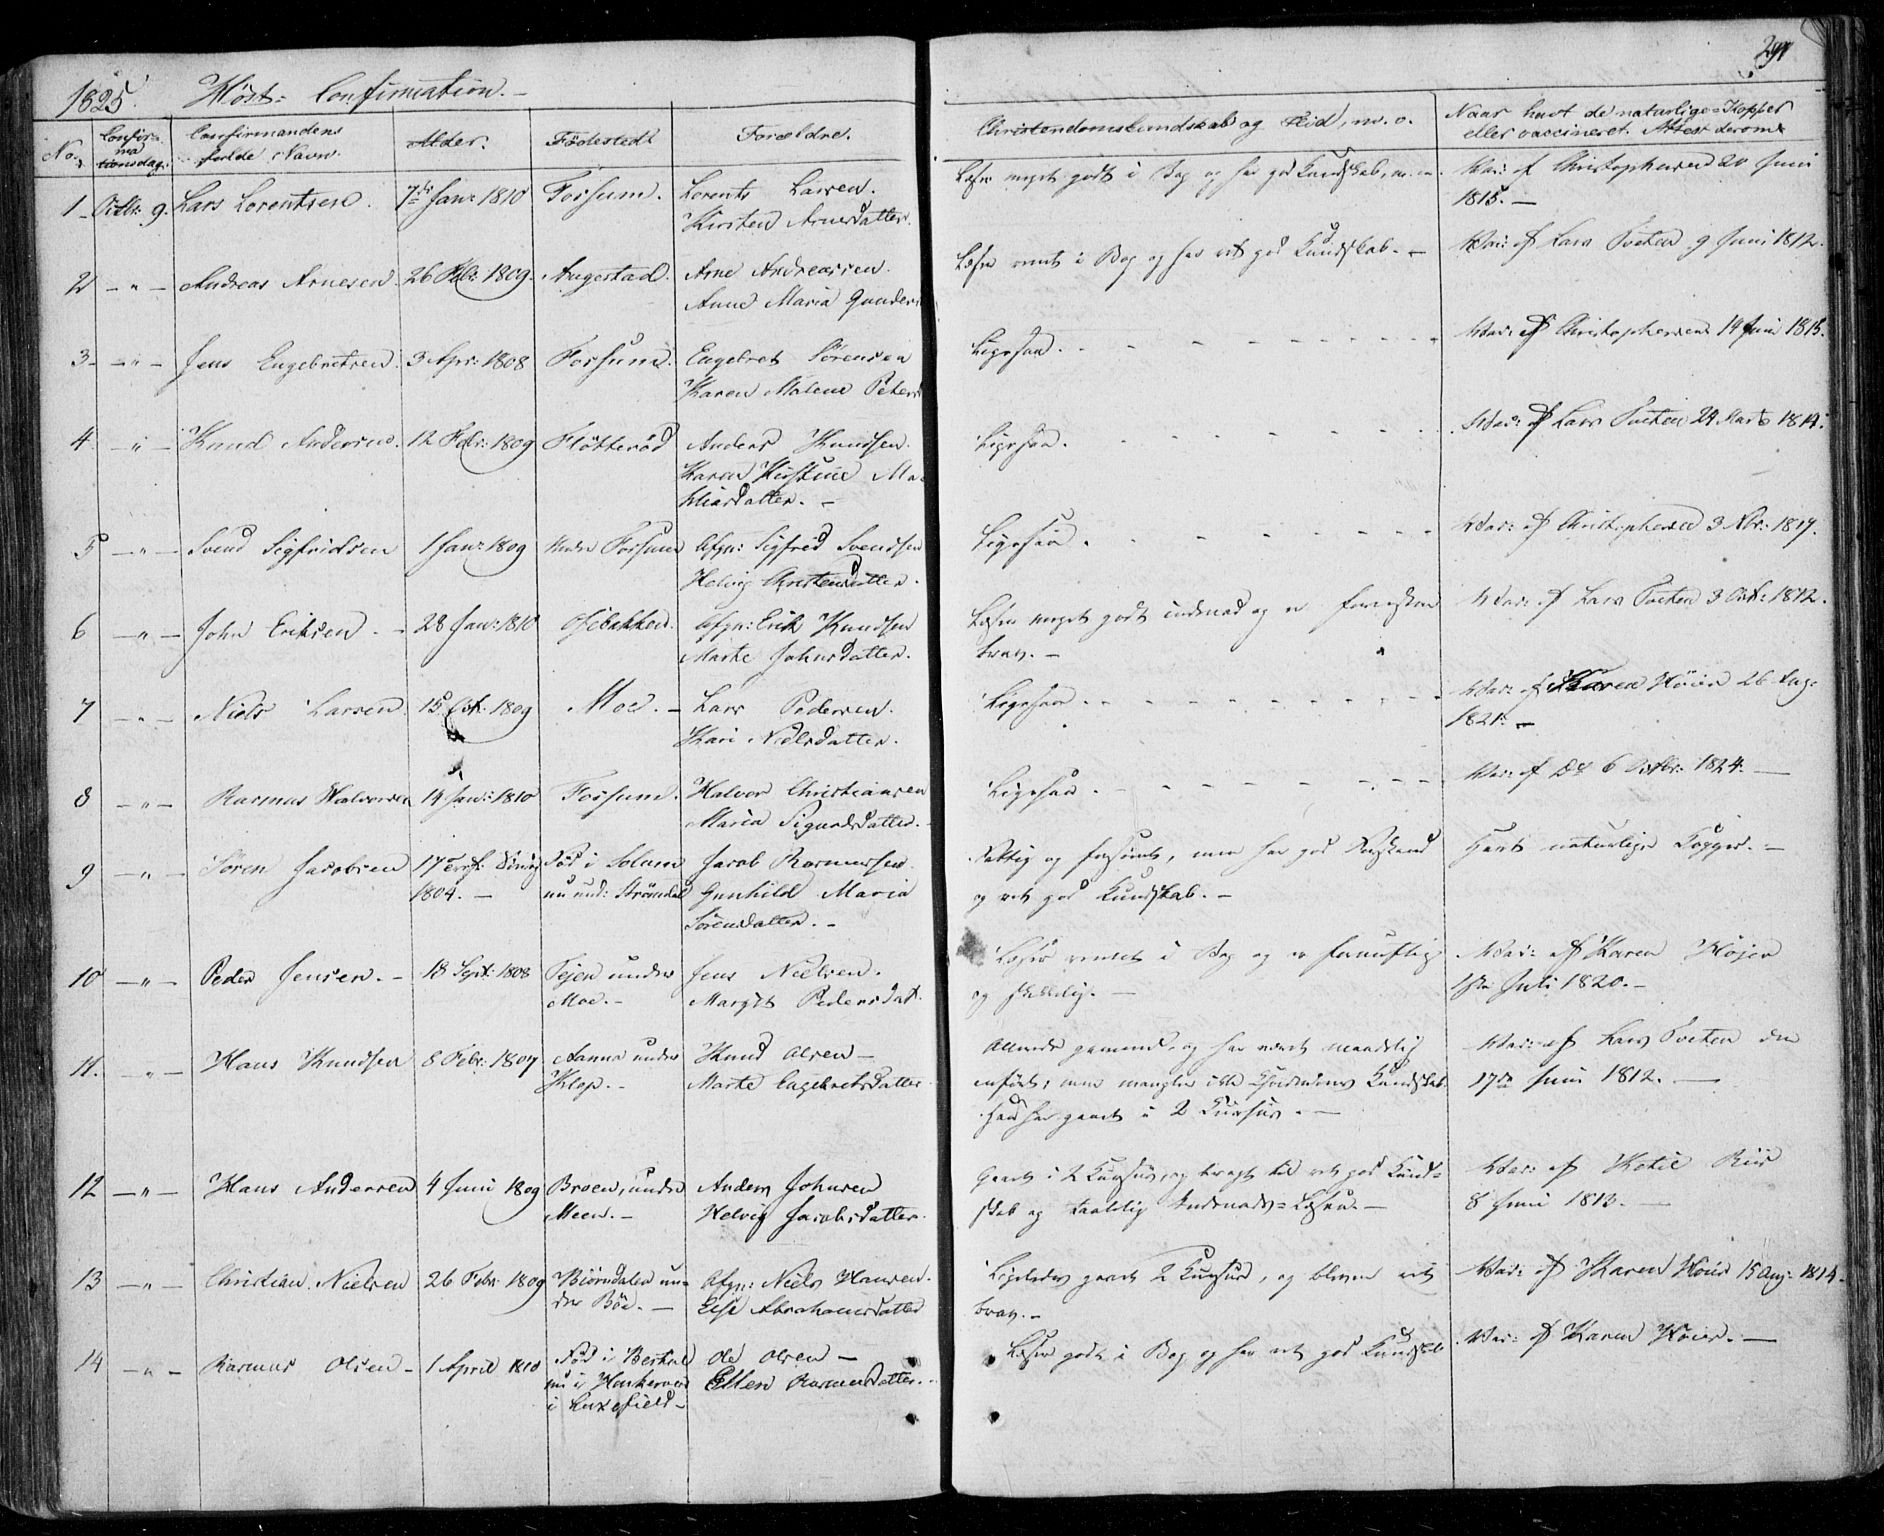 291
1825. Höst= Confirmation.
No.
Confir=
ma
tionsdag.
Confirmandens
fulde Navn.
Alder.
Födested
Forældre.
Christendomskundskab og Flid, m. v.
Naar havt de naturlige Kopper
eller vaccineret. Attest derom
1 Octbr. 9. Lars Lorentsen. 7de Jan: 1810 Fossum. Lorents Larsen.
Kirsten Arnesdatter.
Læser meget godt i Bog og har god Kundskab, m. v.
Vac: af Christophersen 20 Juni
1815.
2 — " — Andreas Arnesen 26 Febr: 1809. Augestad. Arne Andreassen.
Anne Maria Gunders
Læser rent i Bog og har ret god Kundskab. —
Vac: af Lars Tveten 9 Juni 1812.
3 — " — Jens Engebretsen. 3 Apr: 1808 Fossum. Engebret Sörensen
Karen Malene Peters
Ligesaa.
Vac: af Christophersen 14 Juni 1815.
4 — " — Knud Andersen. 12 Febr: 1809 Flötteröd Anders Knudsen.
Karen Kirstine Ma
thiasdatter. —
Ligesaa.
Vac: af Lars Tveten 24 Marts 1814.
5 — " — Svend Sigfridsen 1 Jan: 1809 under Fossum Afgn: Sigfred Svendsen
Helvig Christensdatter.
Ligesaa.
Vac: af Christophersen 3 Nbr: 1817.
6 — " — John Eriksen. — 28 Jan: 1810 Osebakken. Afgn: Erik Knudsen
Marte Johnsdatter.
Læser meget godt indenad og er
brav. —
Vac: af Lars Tveten 3 Oct: 1812.
7 — " — Niels Larsen 15 Oct: 1809 Moe. — Lars Pedersen.
Kari Nielsdatter.
Ligesaa
Vac: af Karen Höier 26 Aug:
1821. —
8 — " — Rasmus Halvorsen 14 Jan: 1810 Fossum. Halvor Christiansen
Maria Sigurdsdatter.
Ligesaa.
Vac: af Do 6 Octbr: 1824. —
9 — " — Sören Jacobsen 17
1804. —
Föd i Solum
nu und: Strömdal
Jacob Rasmussen.
Gunhild Maria
Sörensdatter. —
Fattig og forsömt, men har god Forstand
og ret god Kundskab. —
Havt naturlige Kopper. —
10 — " — Peder Jensen. — 18 Sept: 1808 Tejen under
Moe. —
Jens Nielsen.
Margit Pedersdat.
Læser rentet i Bog og er fornuftig
og skikkelig. —
Vac: af Karen Höjer
1ste Juli 1820. —
11. — " — Hans Knudsen 8 Febr: 1807 Aanna under
Klep. —
Knud Olsen —
Marte Engebretsdatter
Allerede gammel, og har været maadelig
anfört; men mangler ikke Christendoms Kundskab.
han har gaaet i 2 Kursus. —
Vac: af Lars Tveten den
17de Juni 1812. —
12 — " — Hans Andersen 4 Juni 1809 Broen, under
Meen. —
Anders Johnsen
Helvig Jacobsdatter.
Gaaet i 2 Kursus, og bragt til ret god Kund=
skab og taalelig Indenads=Læsen. —
Vac: af Ketil Riis
8 Juni 1813. —
13 — " — Christian Nielsen 26 Febr: 1809 Biörndalen un=
der Böe. —
Afgn: Niels Hansen.
Else Abrahamsdatter
Ligeledes gaaet 2 Kursus, og bleven ret
brav. —
Vac: af Karen Höier 15 Aug: 1814.
14 — " — Rasmus Olsen — 1 April 1810 Föd i
nu i
i Luxefield —
Ole Olsen —
Ellen Rasmusdatter.
Læser godt i Bog og har ret god Kundskab
Vac: af Karen Höier. —